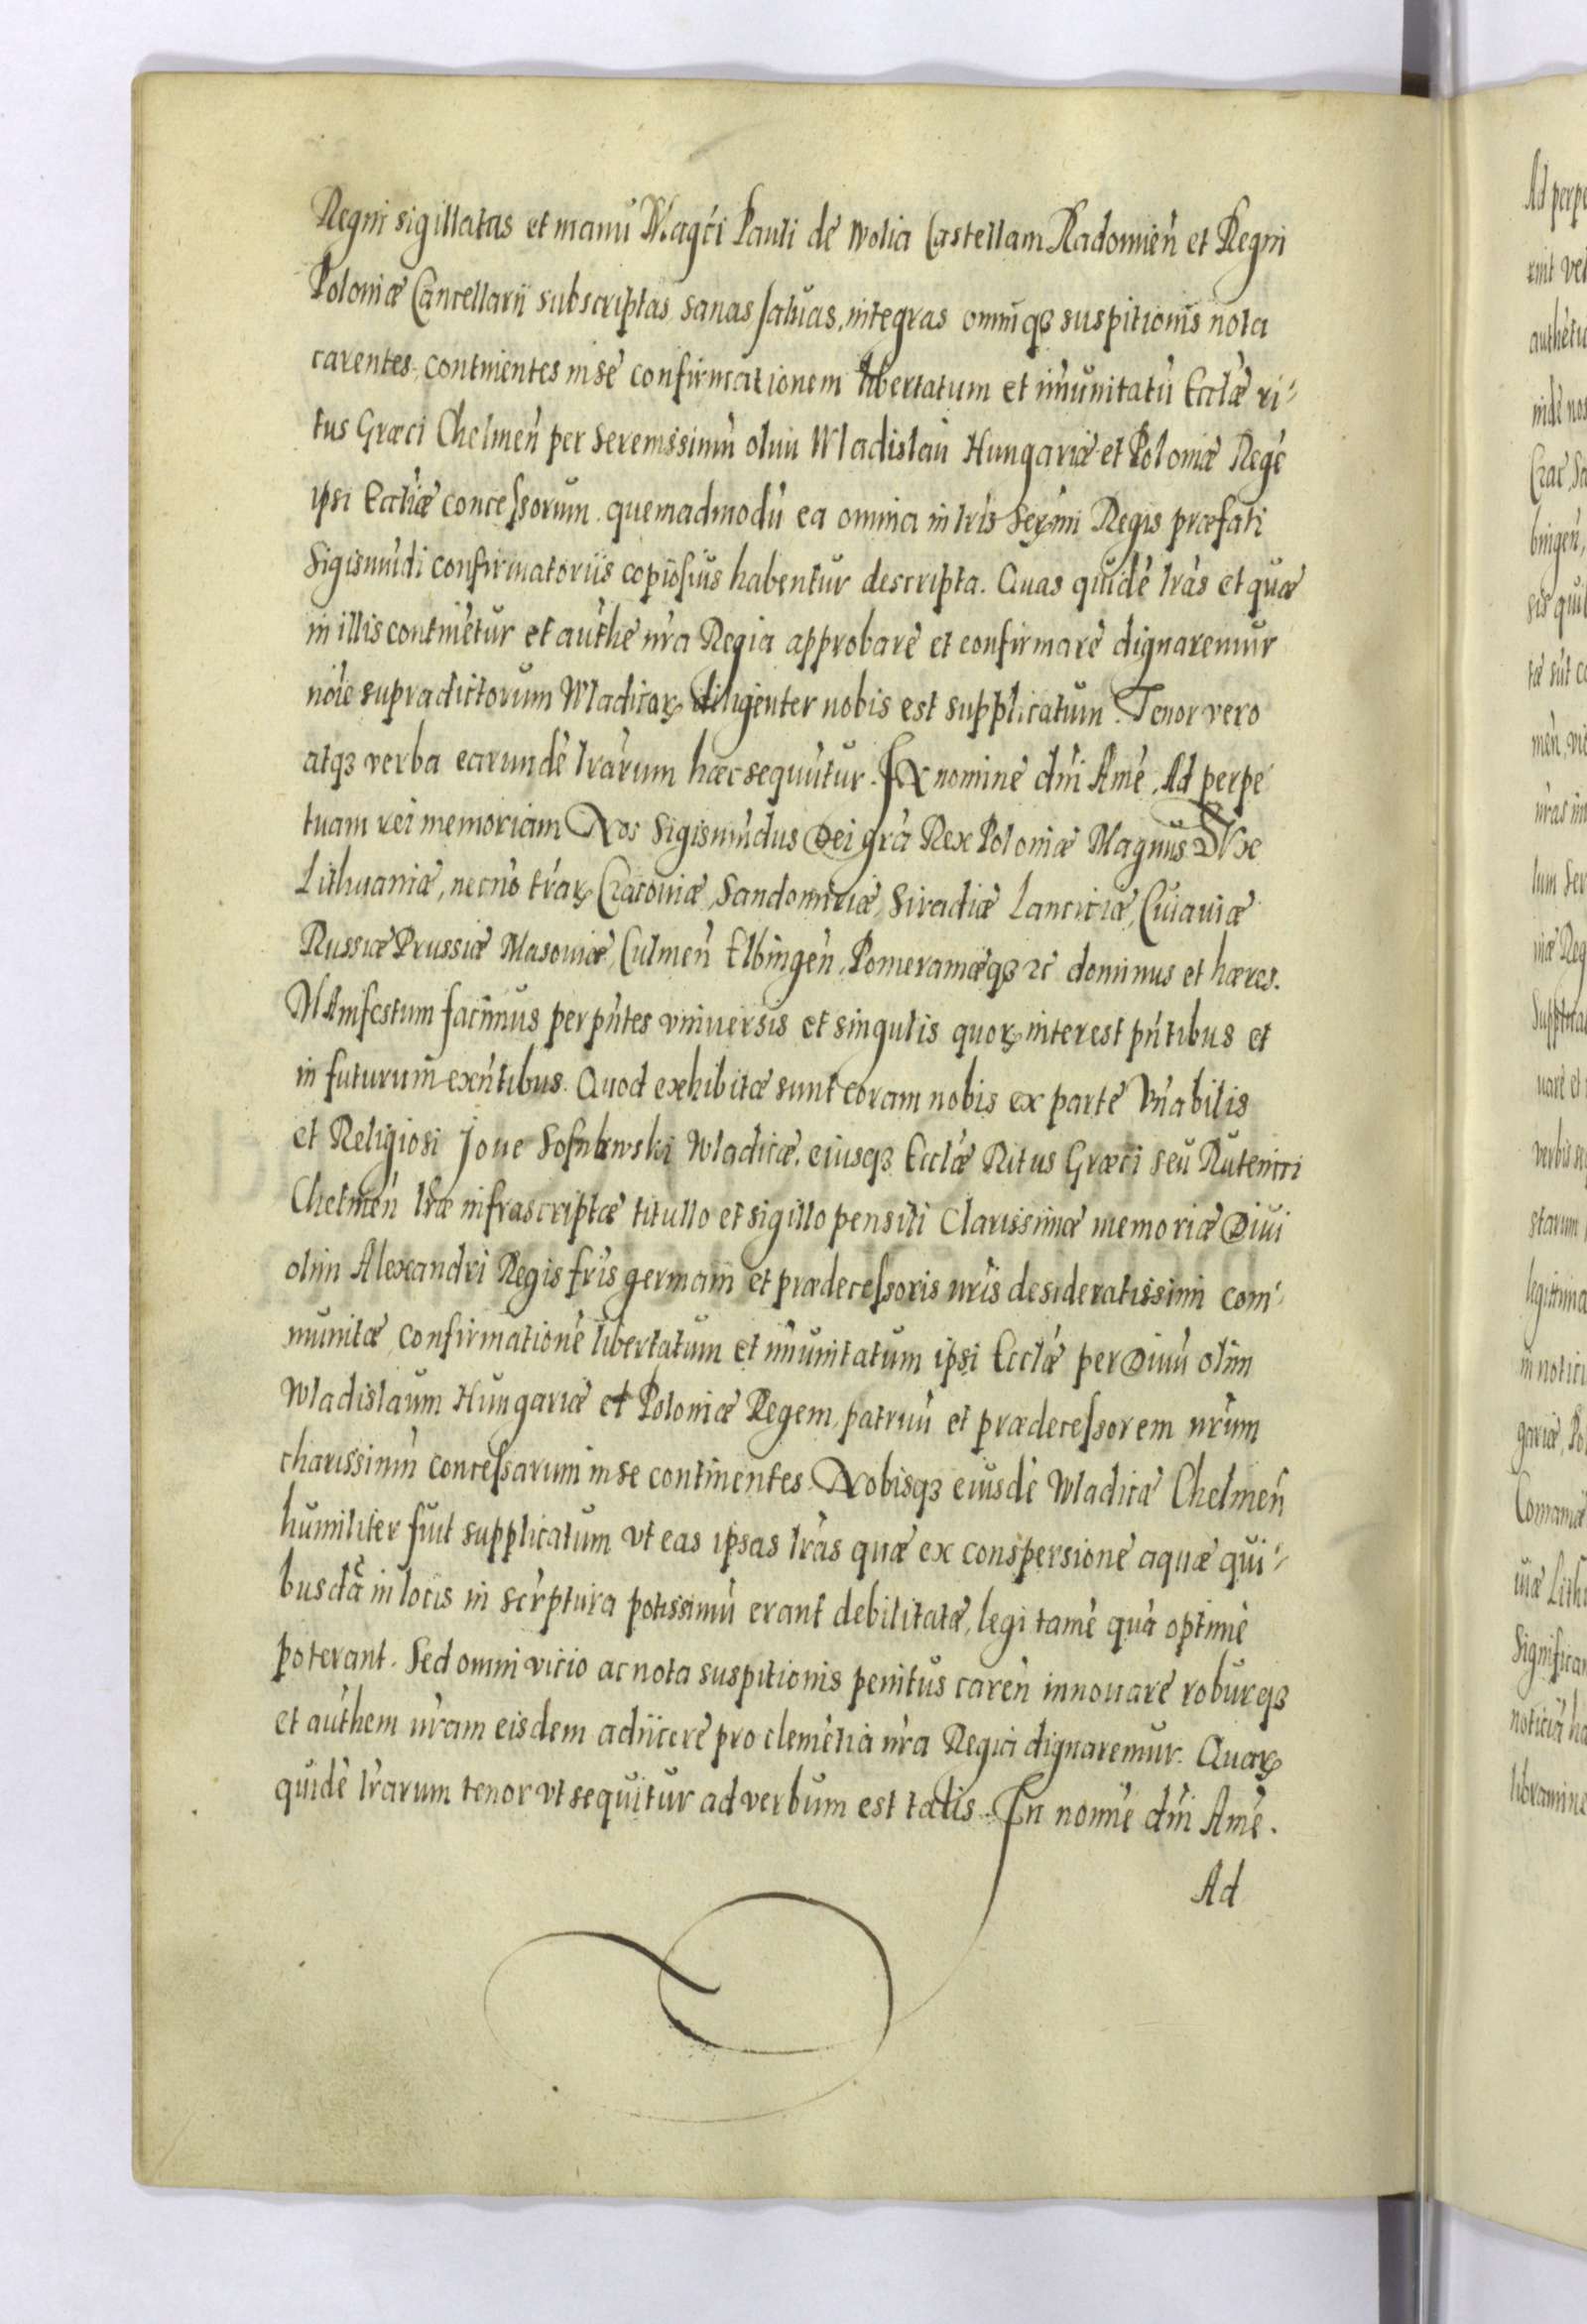 Regni sigillatas et manu Magci Pauli de Wolia Castellani Radomien et Regni
Poloniæ Cancellarii subscriptas sanas saluas, integras omniqȝ suspitionis nota
carentes, continentes in se confirmationem libertatum et imunitatu Ecclæ ri-
tus Græci Chelmen per Serenissimu olim Wladislau Hungariæ et Poloniæ Rege
ipsi Eccliæ concessorum quemadmodu ea omnia in lris Sermi Regis præfati
Sigismudi confirmatoriis copiosius habentur descripta. Quas quide lras et quæ
in illis continetur et authe nra Regia approbare et confirmare dignaremur
noie supradictorum Wladicaꝝ diligenter nobis est supplicatum. Tenor vero
atqȝ verba earunde lrarum hæc sequutur. In nomine dni Ame. Ad perpe
tuam rei memoriam Nos Sigismudus Dei gra Rex Poloniæ Magnus Dux
Lithuaniæ, necno traꝝ Cracouiæ, Sandomiriæ, Siradiæ Lanciciæ, Cuiauiæ
Russiæ Prussiæ Masouiæ, Culmen Elbingen, Pomeraniæqȝ ꝛc dominus et hæres.
MAnifestum facimus per pntes vniuersis et singulis quoꝝ interest pntibus et
in futurum exntibus. Quod exhibitæ sunt coram nobis ex parte Vnabilis
et Religiosi Jone Wladicæ, eiusqȝ Ecclæ Ritus Græci seu Rutenici
Chelmen lræ infrascriptæ titullo et sigillo pensili Clarissimæ memoriæ Diui
olim Alexandri Regis fris germani et prædecessoris nris desideratissimi com-
munitæ confirmatione libertatum et imunitatum ipsi Ecclæ per Diuu olim
Wladislaum Hungariæ et Poloniæ Regem, patruu et prædecessorem nrum
charissimu concessarum in se continentes. Nobisqȝ eiusde Wladica Chelmen
humiliter fuit supplicatum vt eas ipsas lras quæ ex conspersione aquæ qui-
busda in locis in scrptura potissimu erant debilitatæ, legi tame qua optime
poterant. Sed omni vicio ac nota suspitionis penitus caren innouare roburqȝ
et authem nram eisdem adiicere pro clemetia nra Regia dignaremur. Quaꝝ
quide lrarum tenor vt sequitur ad verbum est talis. In nomie dni Ame.
Ad